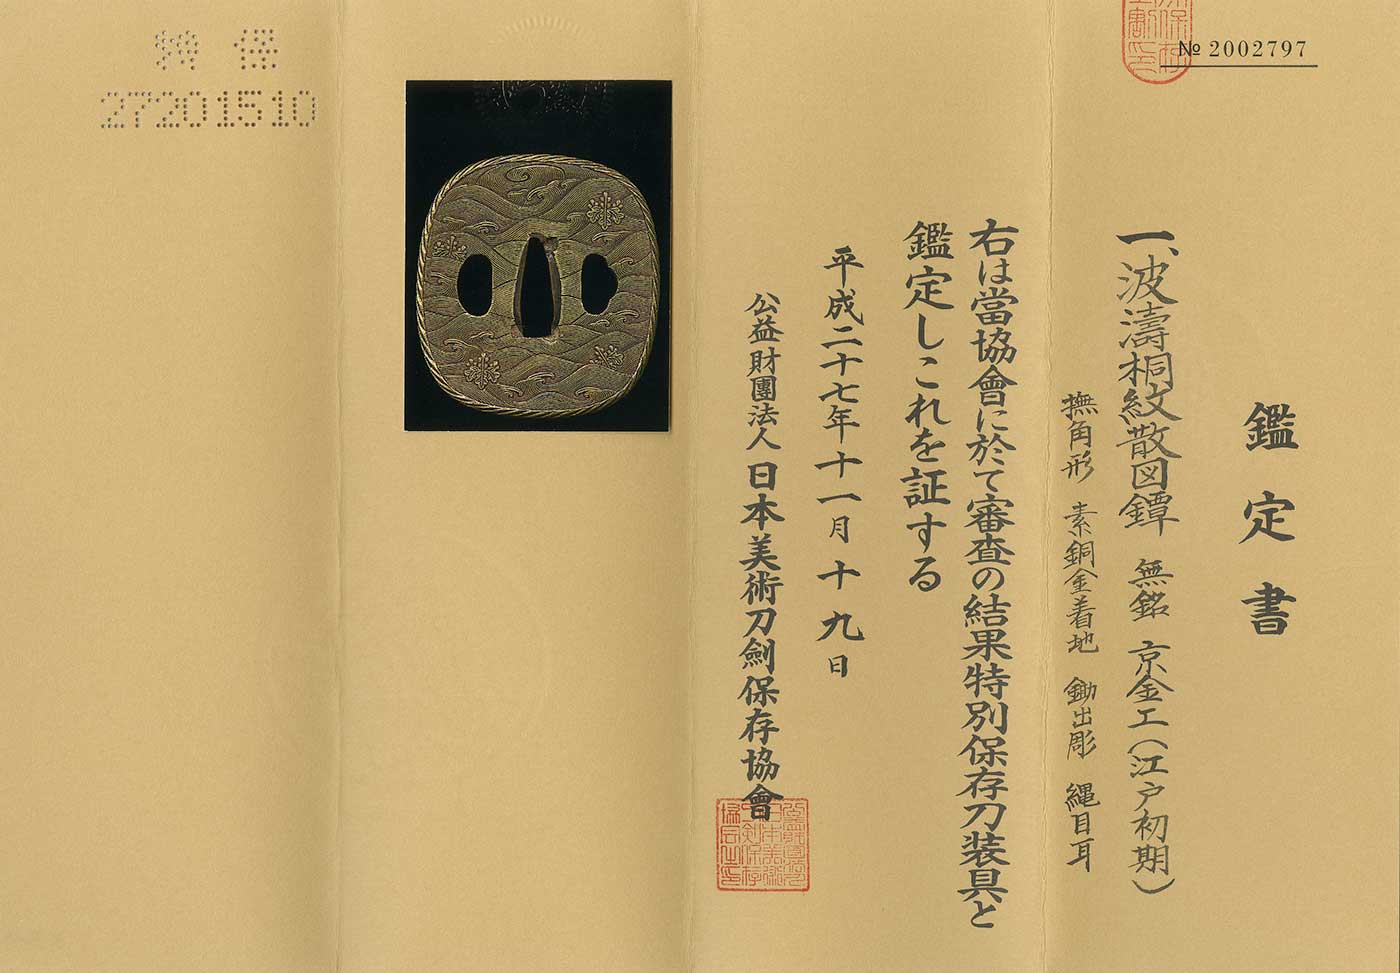 № 2002797
鑑定書
一、波濤桐紋散図鐔 無銘 京金工(江戸初期)
撫角形 素銅金着地 鋤出彫 縄目耳
右は當協會に於て審査の結果特別保存刀装具と
鑑定しこれを証する
平成二十七年十一月十九日
公益財團法人日本美術刀劍保存協會
特保
27201510